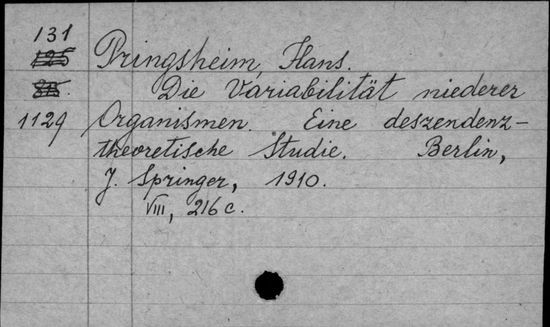 131
125
Pringsheim, Hans.
Die Variabilität niederer
1129 Organismen. Eine deszendenz-
theoretische Studie. Berlin,
J. Springer, 1910.
VIII, 216 c.